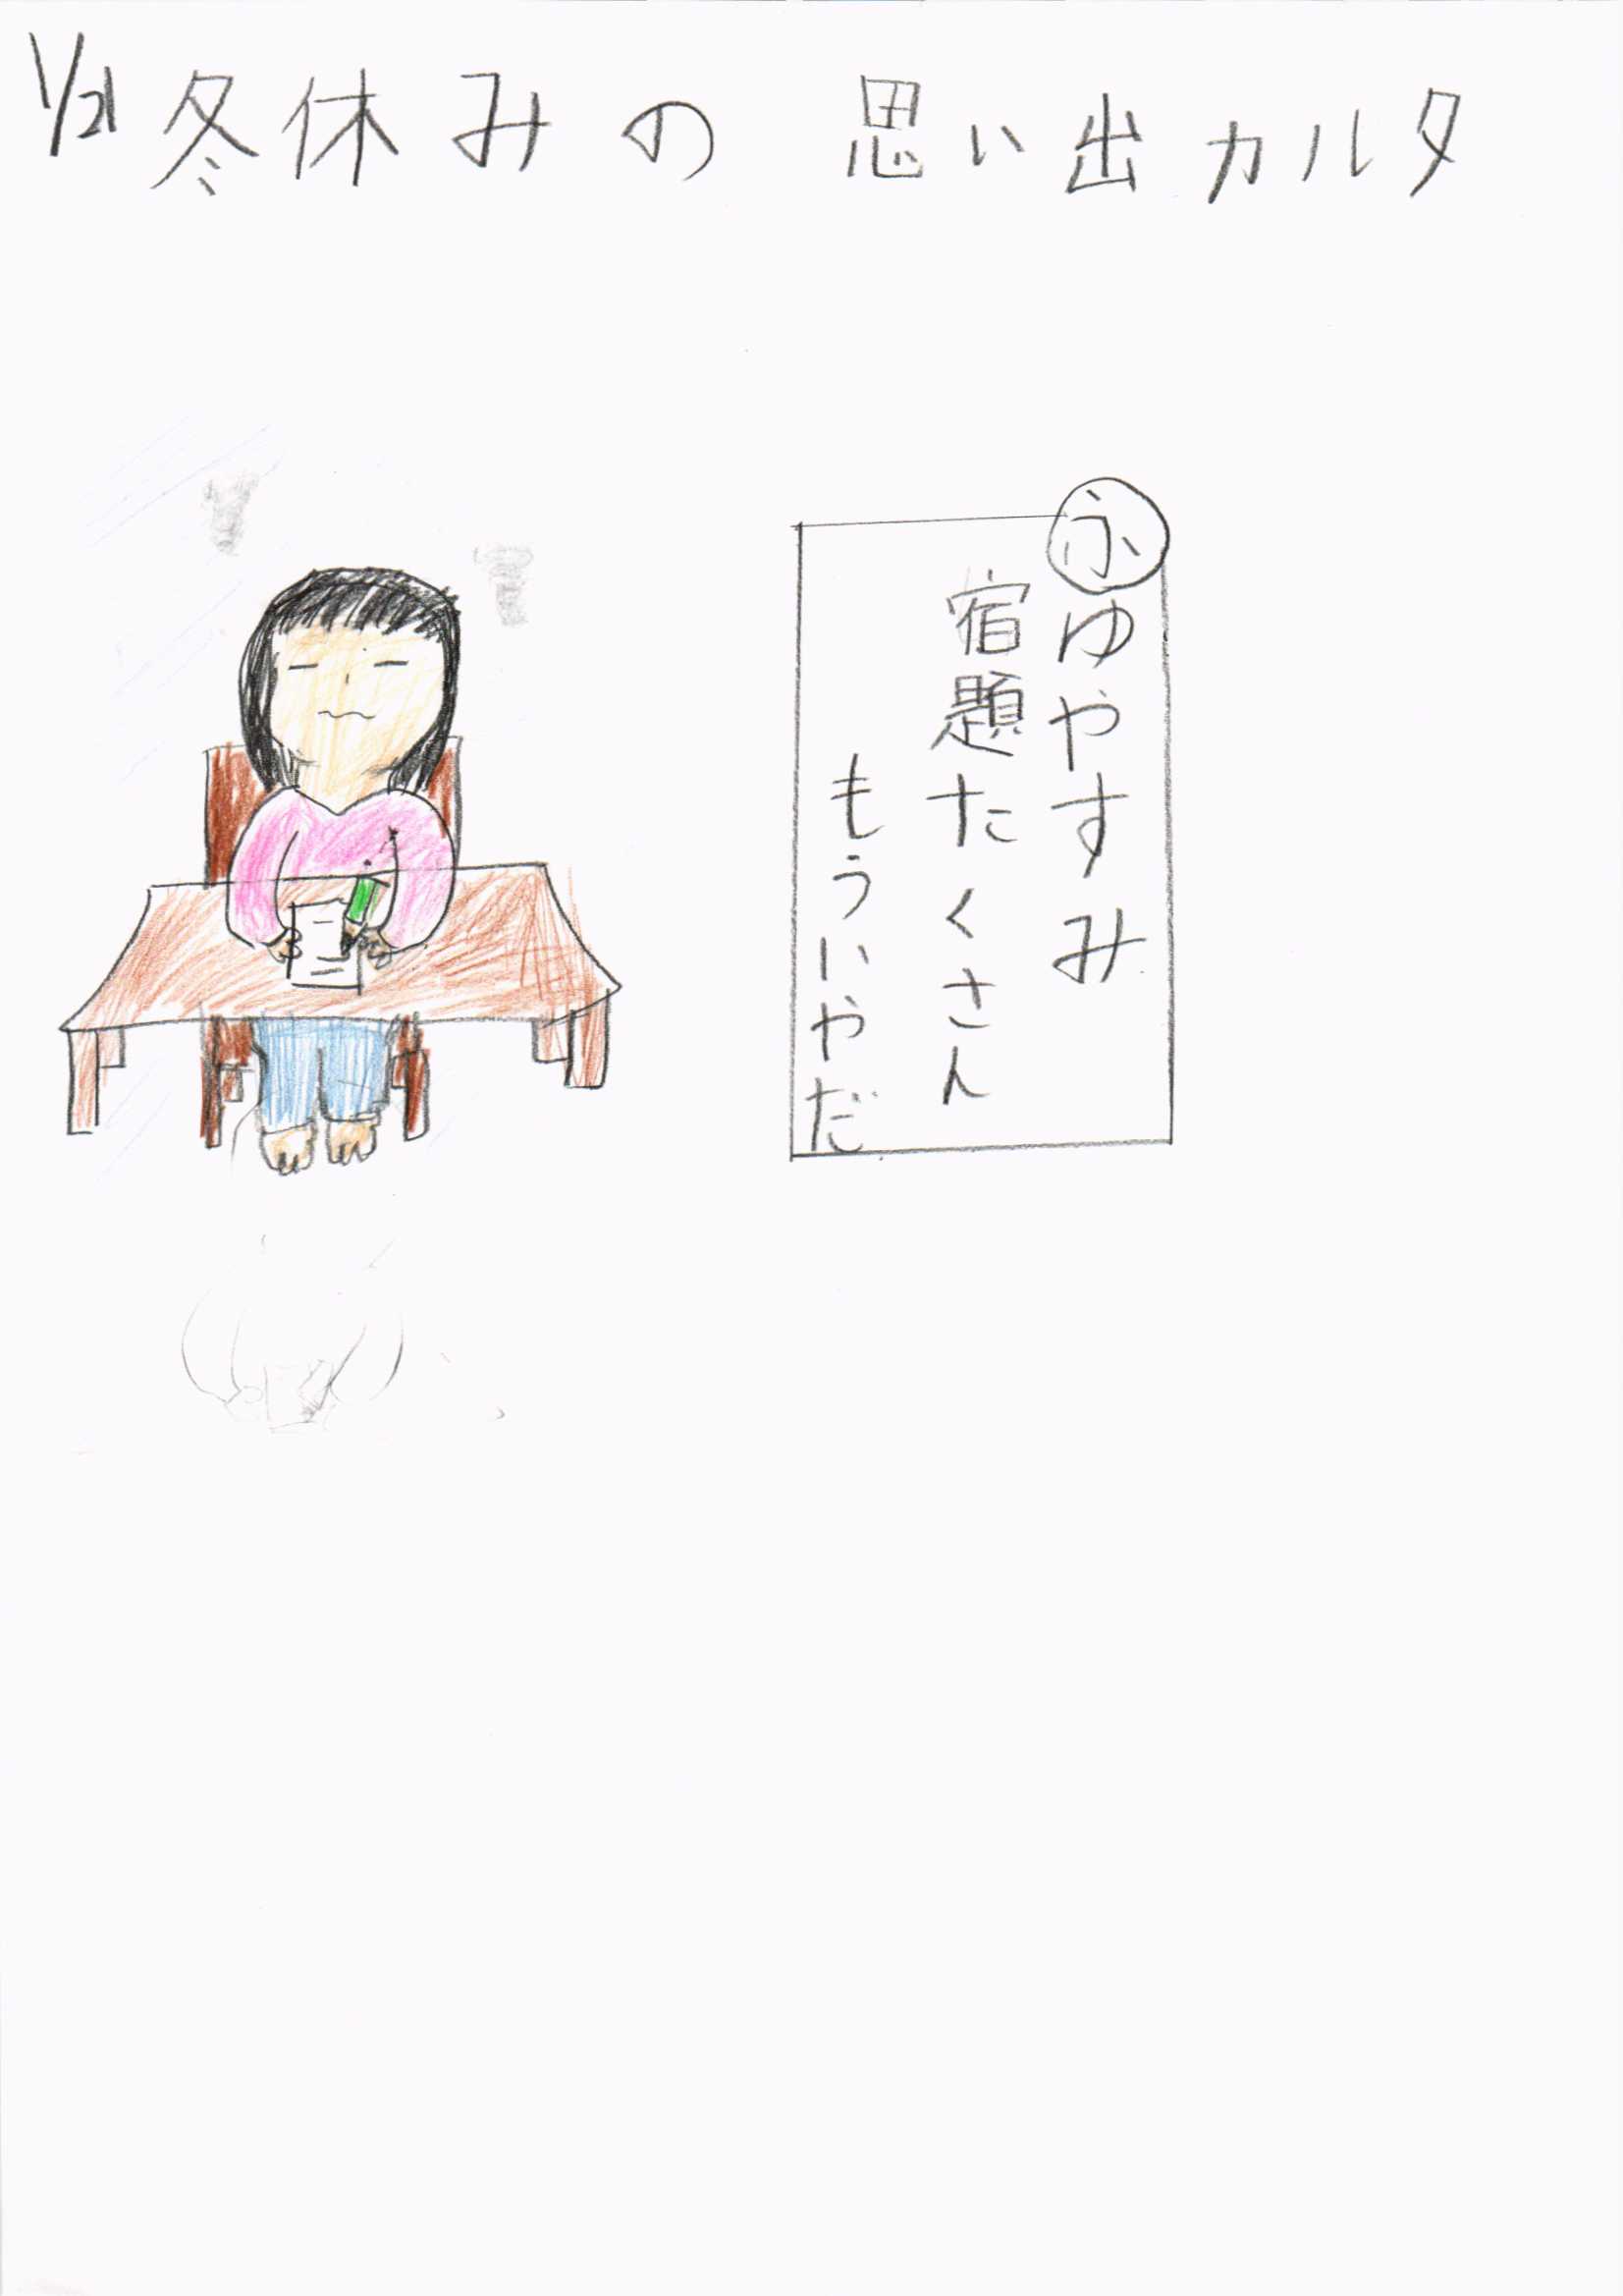 1/21 冬休みの 思い出カルタ
ふゆやすみ
宿題たくさん
もういやだ